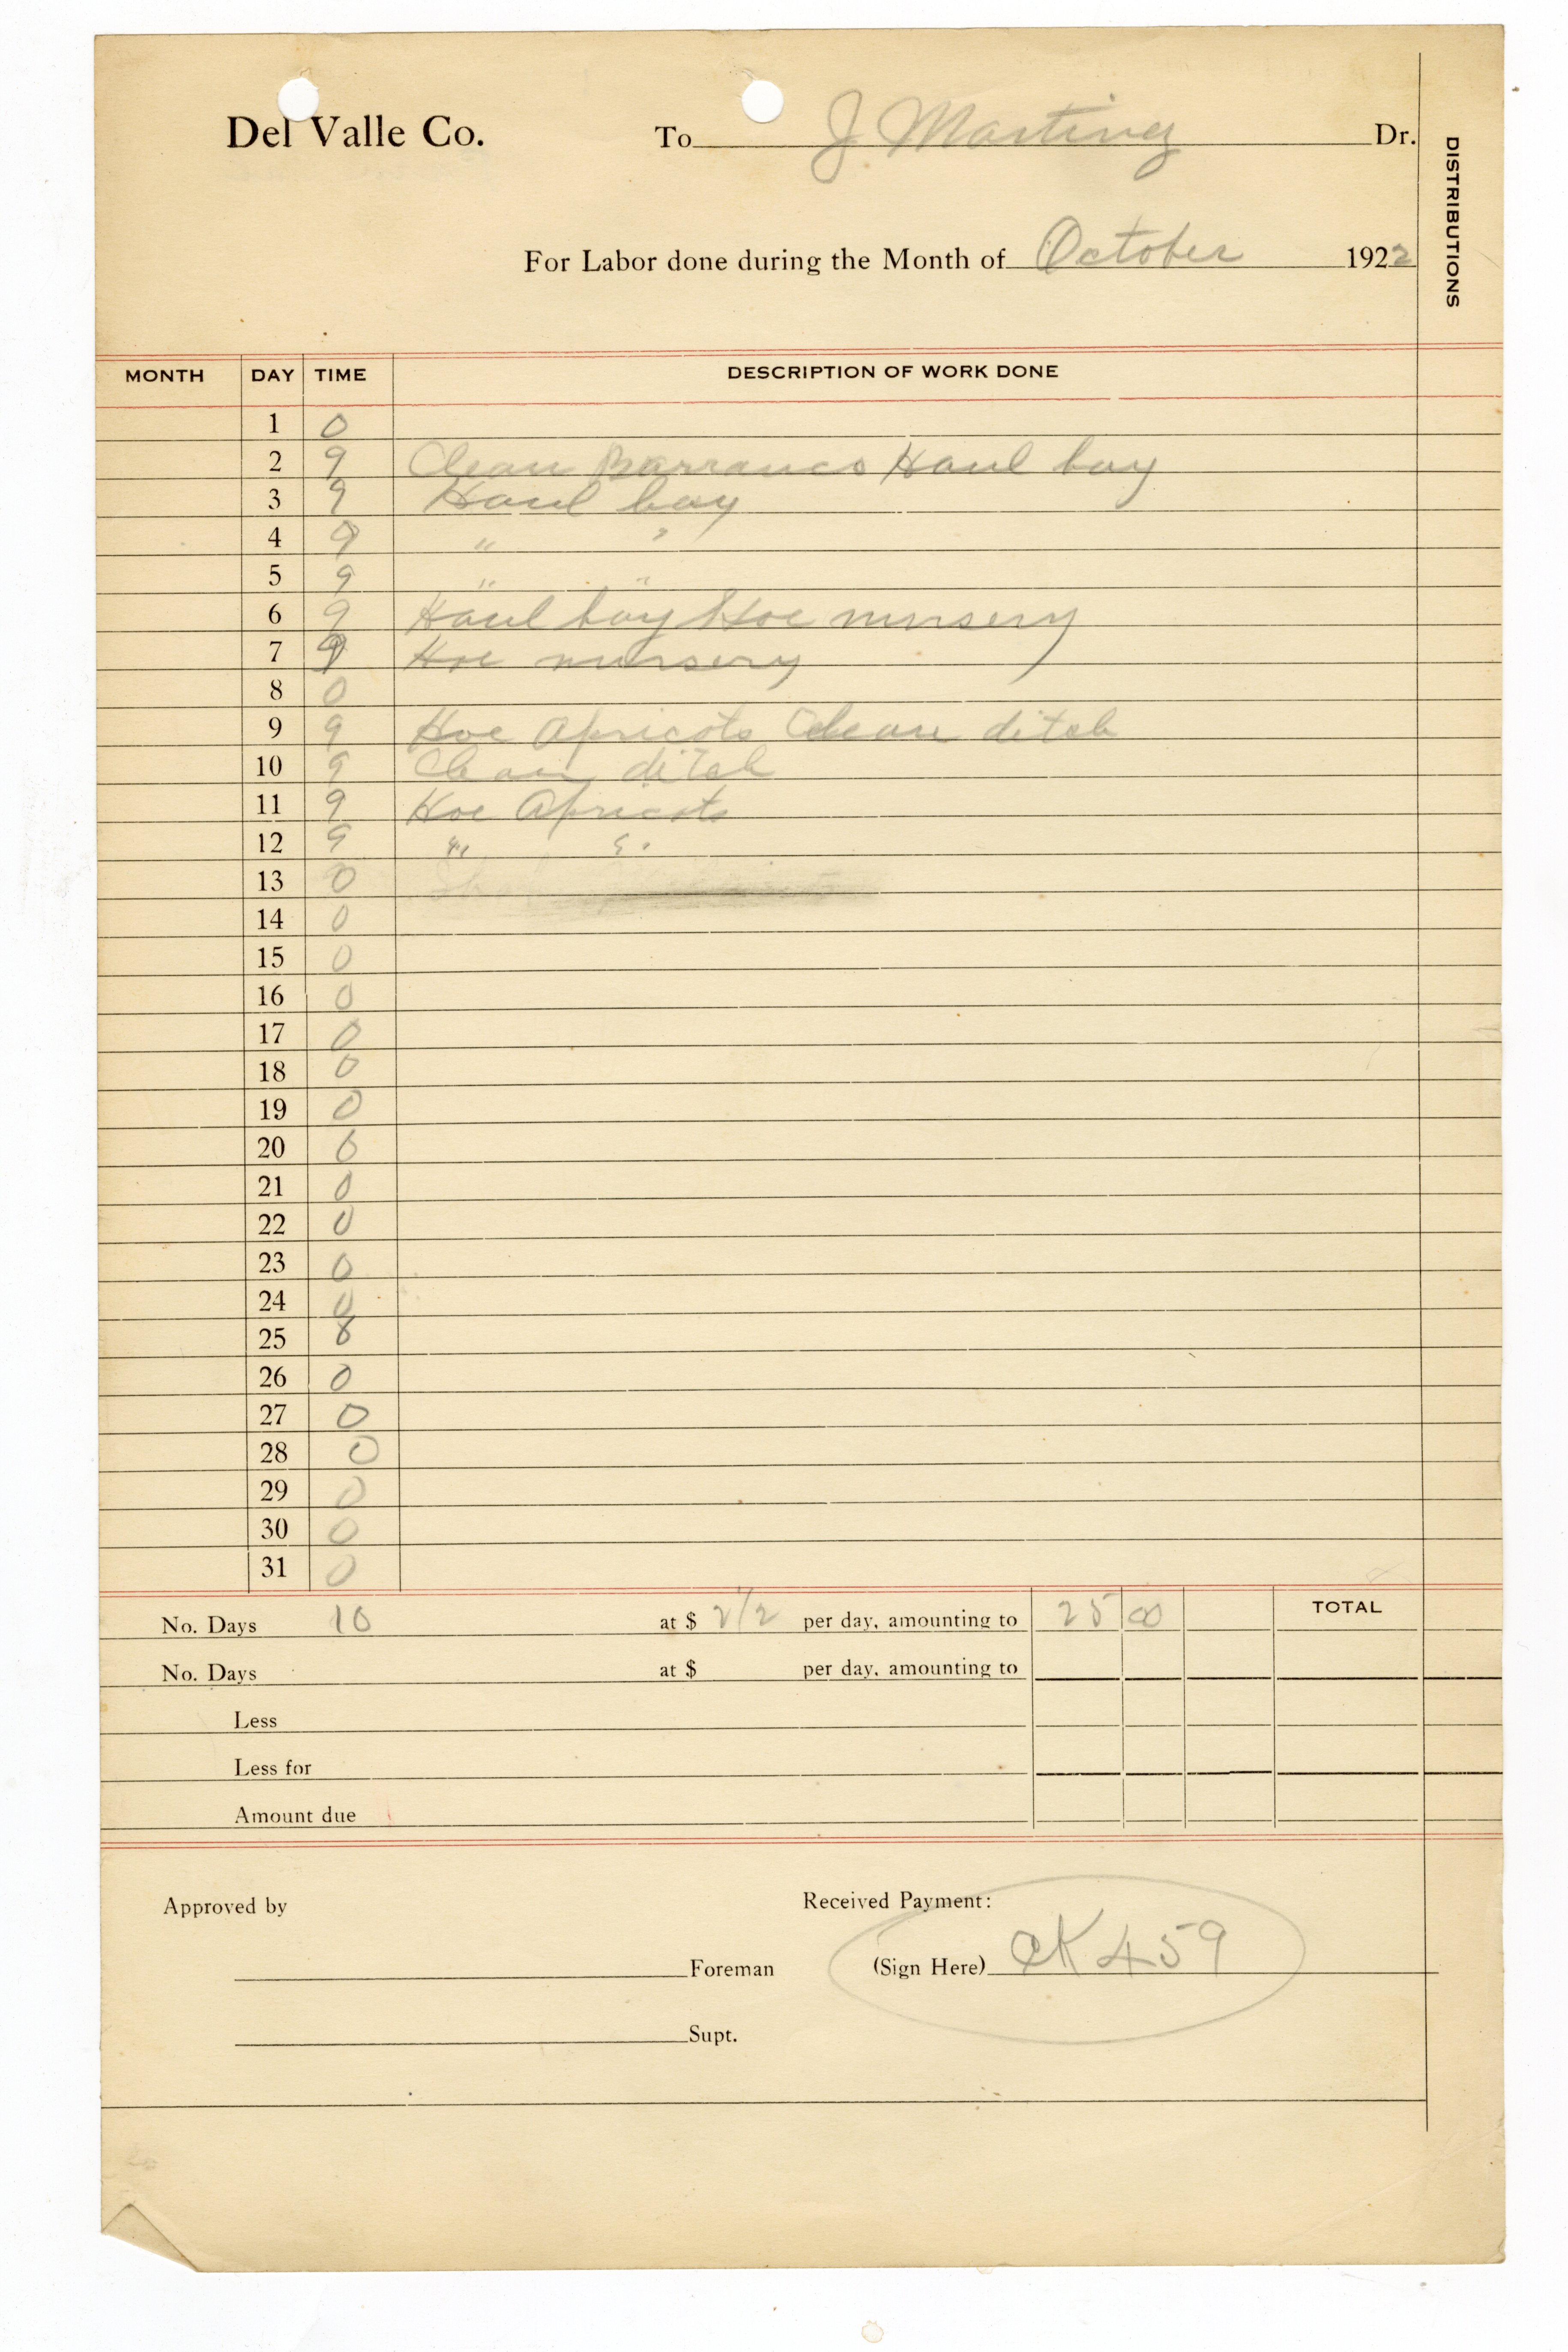 Del Valle Co. To J Martinez Dr.
DISTRIBUTIONS
For Labor done during the Month of October 1922
MONTH DAY TIME DESCRIPTION OF WORK DONE
1 0
2 9 Clean Barranco Haul hay
3 9 Haul hay
4 9 " "
5 9 " "
6 9 Haul hay Hoe nursery
7 9 Hoe nursery
8 0
9 9 Hoe Apricots Clean ditch
10 9 Clean ditch
11 9 Hoe Apricots
12 9 " "
13 0
14 0
15 0
16 0
17 0
18 0
19 0
20 0
21 0
22 0
23 0
24 0
25 0
26 0
27 0
28 0
29 0
30 0
31 0
No. Days 10 at $ 2 1/2 per day, amounting to 25 00 TOTAL
No. Days at $ per day, amounting to
Less
Less for
Amount due
Approved by Received Payment:
Foreman (Sign Here) CK 459
Supt.